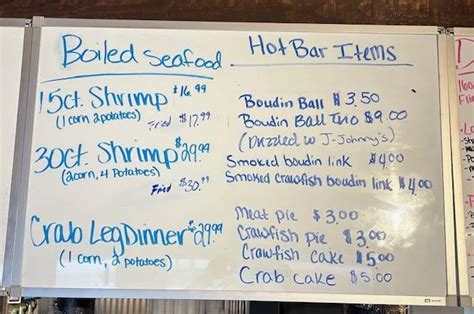 Boiled Seafood
15ct. Shrimp $16.99
(1 corn 2 potatoes) Fried $17.99
30ct. Shrimp $29.99
(2 corn, 4 Potatoes)
Fried $30.99
Crab Leg Dinner $29.99
(1 corn, 2 potatoes)
Hot Bar Items
Boudin Ball $3.50
Boudin Ball Trio $9.00
(Drizzled w J-Johnny's)
Smoked boudin link $4.00
Smoked Crawfish boudin link $4.00
Meat pie $3.00
Crawfish pie $3.00
Crawfish cake $5.00
Crab cake $5.00